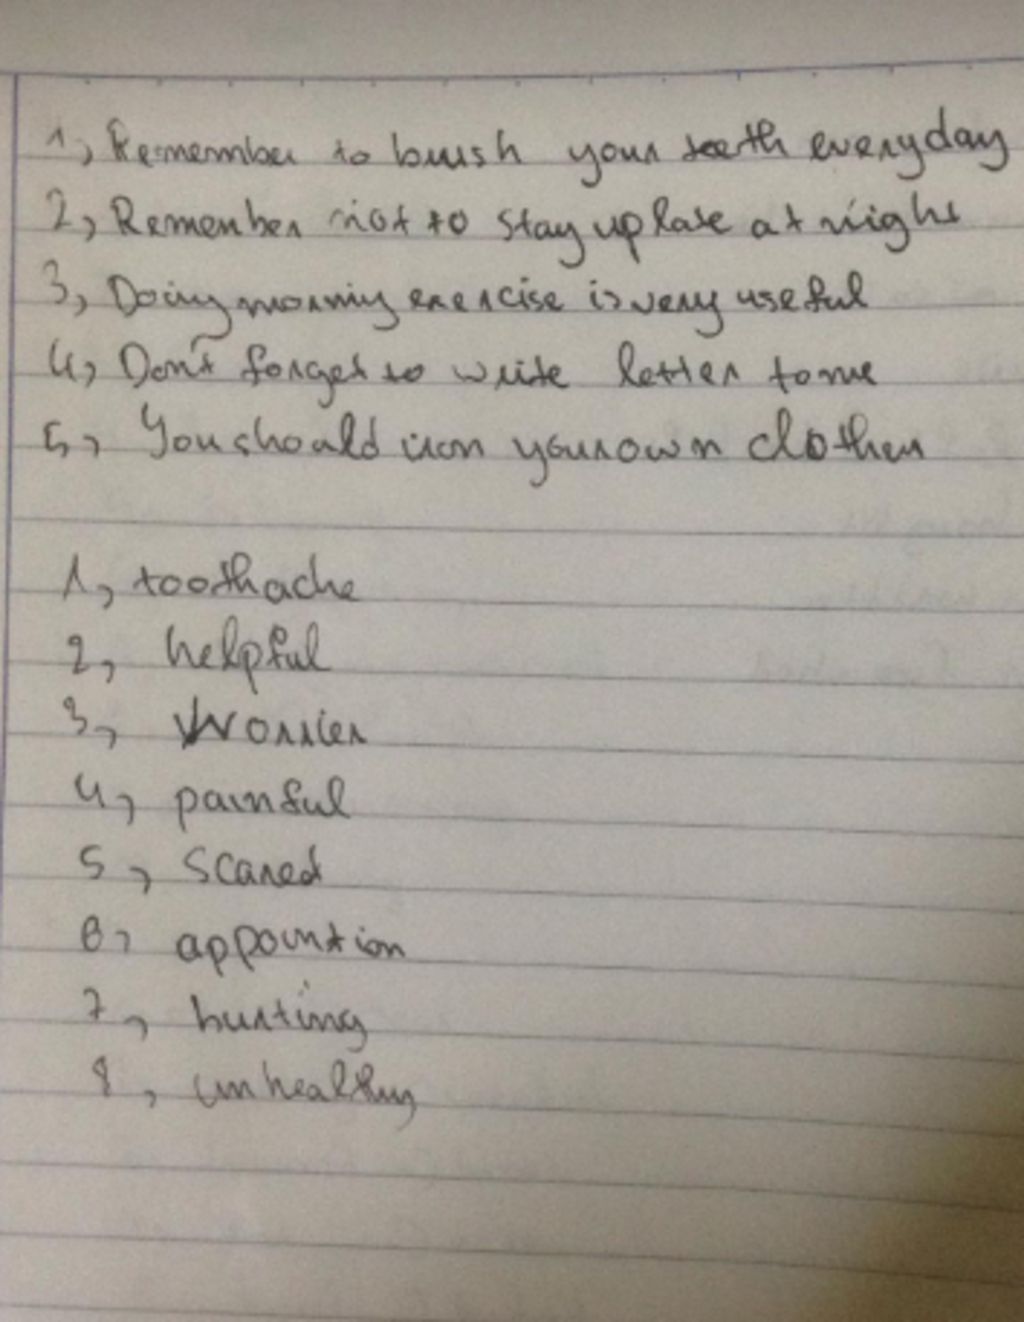 1, Remember to brush your teeth everyday
2, Remember not to stay up late at night
3, Doing morning exercise is very useful
4, Don't forget to write letter to me
5, You should iron your own clothes
1, toothache
2, helpful
3, Worrier
4, painful
5, scared
6, appointion
7, hurting
8, unhealthy